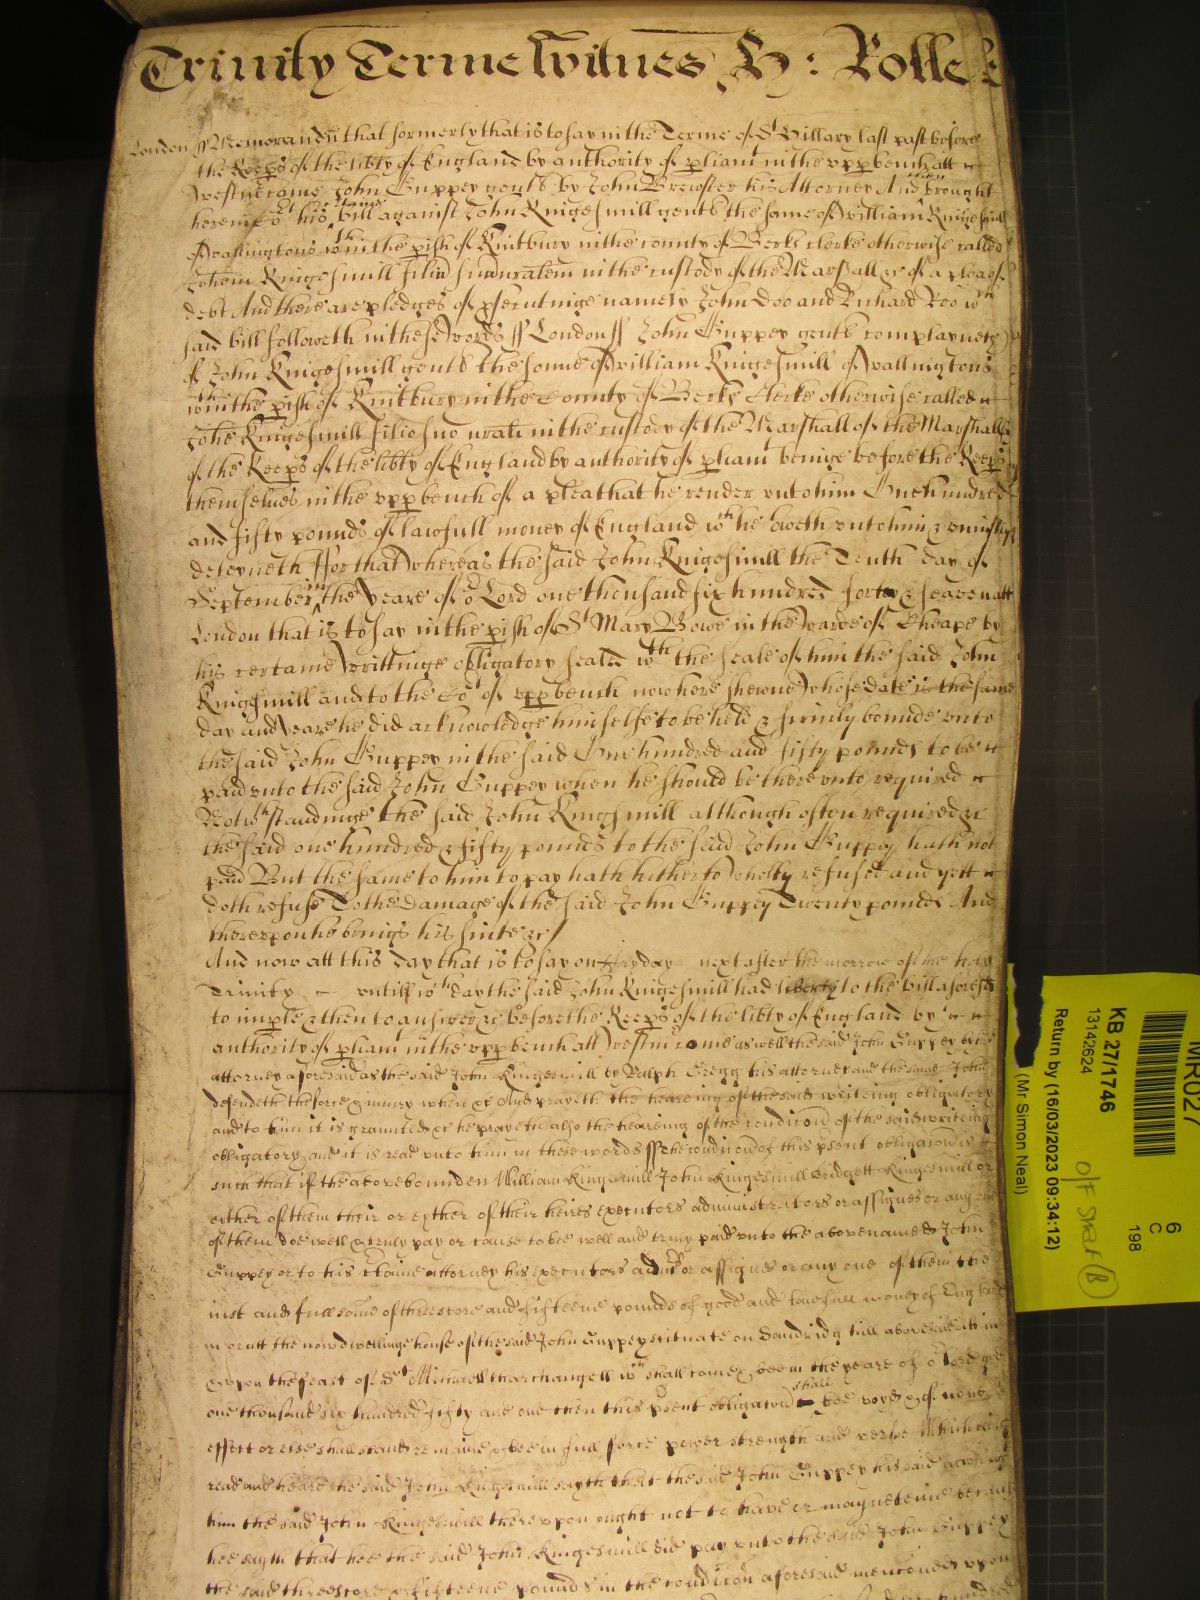 Trinity Terme Witnes H: Rolle
London ss Memorandu that formerly that is to say in the Terme of St Hillary last past before
the Keeps of the libty of England by authority of pliamt in the upp bench att
Westm came John Guppey gent by John Brewster his Attorney And brought
here into Cot his certaine bill against John Kingesmill gent the sonne of William Kingesmill
of Wallingtons wthin the pish of Kintbury in the county of Berks Clerke otherwise called
Johem Kingesmill filiu suu naturalem in the custody of the Marshall &c of a plea of
debt And there are pledges of psecutinge namely John Doo and Richard Roo wch
said bill followeth in these Words ss London ss John Guppey gent complayneth
of John Kingesmill gent the sonne of William Kingesmill of Wallingtons
wthin the pish of Kintbury in the County of Berks Clerke otherwise called
Johe Kingesmill filio suo nrali in the custody of the Marshall of the Marshalls
of the Keeps of the libty of England by authority of pliamt beinge before the Keeps
themselves in the upp bench of a plea that he render unto him One hundred
and fifty pounds of lawfull money of England wch he oweth unto him & uniustly
deteyneth ffor that Whereas the said John Kingesmill the Tenth day of
September in the Yeare of or Lord one thousand six hundred forty & seaven att
London that is to say in the pish of St Mary Bowe in the Warde of Cheape by
his certaine Writtinge obligatory sealed wth the seale of him the said John
Kingsmill and to the Cot of upp bench now here shewne Whose date is the same
day and Yeare he did acknowledge himselfe to be held & firmly bounde unto
the said John Guppey in the said One hundred and fifty pounds to be
paid unto the said John Guppey when he should be thereunto required
Notwthstandinge the said John Kingsmill although often required &c
the said one hundred & fifty pounds to the said John Guppey hath not
paid But the same to him to pay hath hitherto Wholly refused and yett
doth refuse To the Damage of the said John Guppey Twenty pounds And
thereupon he brings his suite &c
And now att this day that is to say on ffryday next after the morrow of the holy
Trinity untill wch day the said John Kingesmill had liberty to the bill aforesd
to imple & then to answer &c before the Keeps of the libty of England by
authority of pliamt in the upp bench att Westm come as well the said John Guppey by his
attorney aforesaid as the said John Kingesmill by Ralph Gregg his attorney and the same John
defendeth the force & iniury when &c And prayeth the heareing of the said writeing obligatory
and to him it is graunted &c he prayeth also the heareing of the condicon of the said writeing
obligatory and it is read unto him in these words ss The condicon of this psent obligacon is
such that if the above bounden William Kingesmill John Kingesmill Bridgett Kingesmill or
either of them their or eyther of their heires executors administrators or assignes or any one
of them doe well & truly pay or cause to bee well and truly paid unto the abovenamed John
Guppey or to his certaine attorney his executors admrs or assignes or any one of them the
iust and full some of threescore and fifteene pounds of good and lawfull money of England
in or att the now dwellinge house of the said John Guppey scituate on Sandridg hill abovesaid in
& upon the feast of St Michaell tharchangell wch shall come & bee in the yeare of or Lord god
one thousand six hundred fifty and one then this psent obligacon shall bee voyd & of none
effect or else shall stand remaine & bee in full force power strength and vertue Which being
read and heard the said John Kingesmill sayth that the said John Guppey his said accon against
him the said John Kingesmill thereupon ought not to have or mayneteine because
hee sayth that hee the said John Kingesmill did pay unto the said John Guppey
the said threescore & fifteene pounds in the condicon aforesaid menconed upon
MR027
KB 27/1746
13142624
Return by (16/03/2023 09:34:12)
(Mr Simon Neal)
6
C
198
O/F Shelf (B)